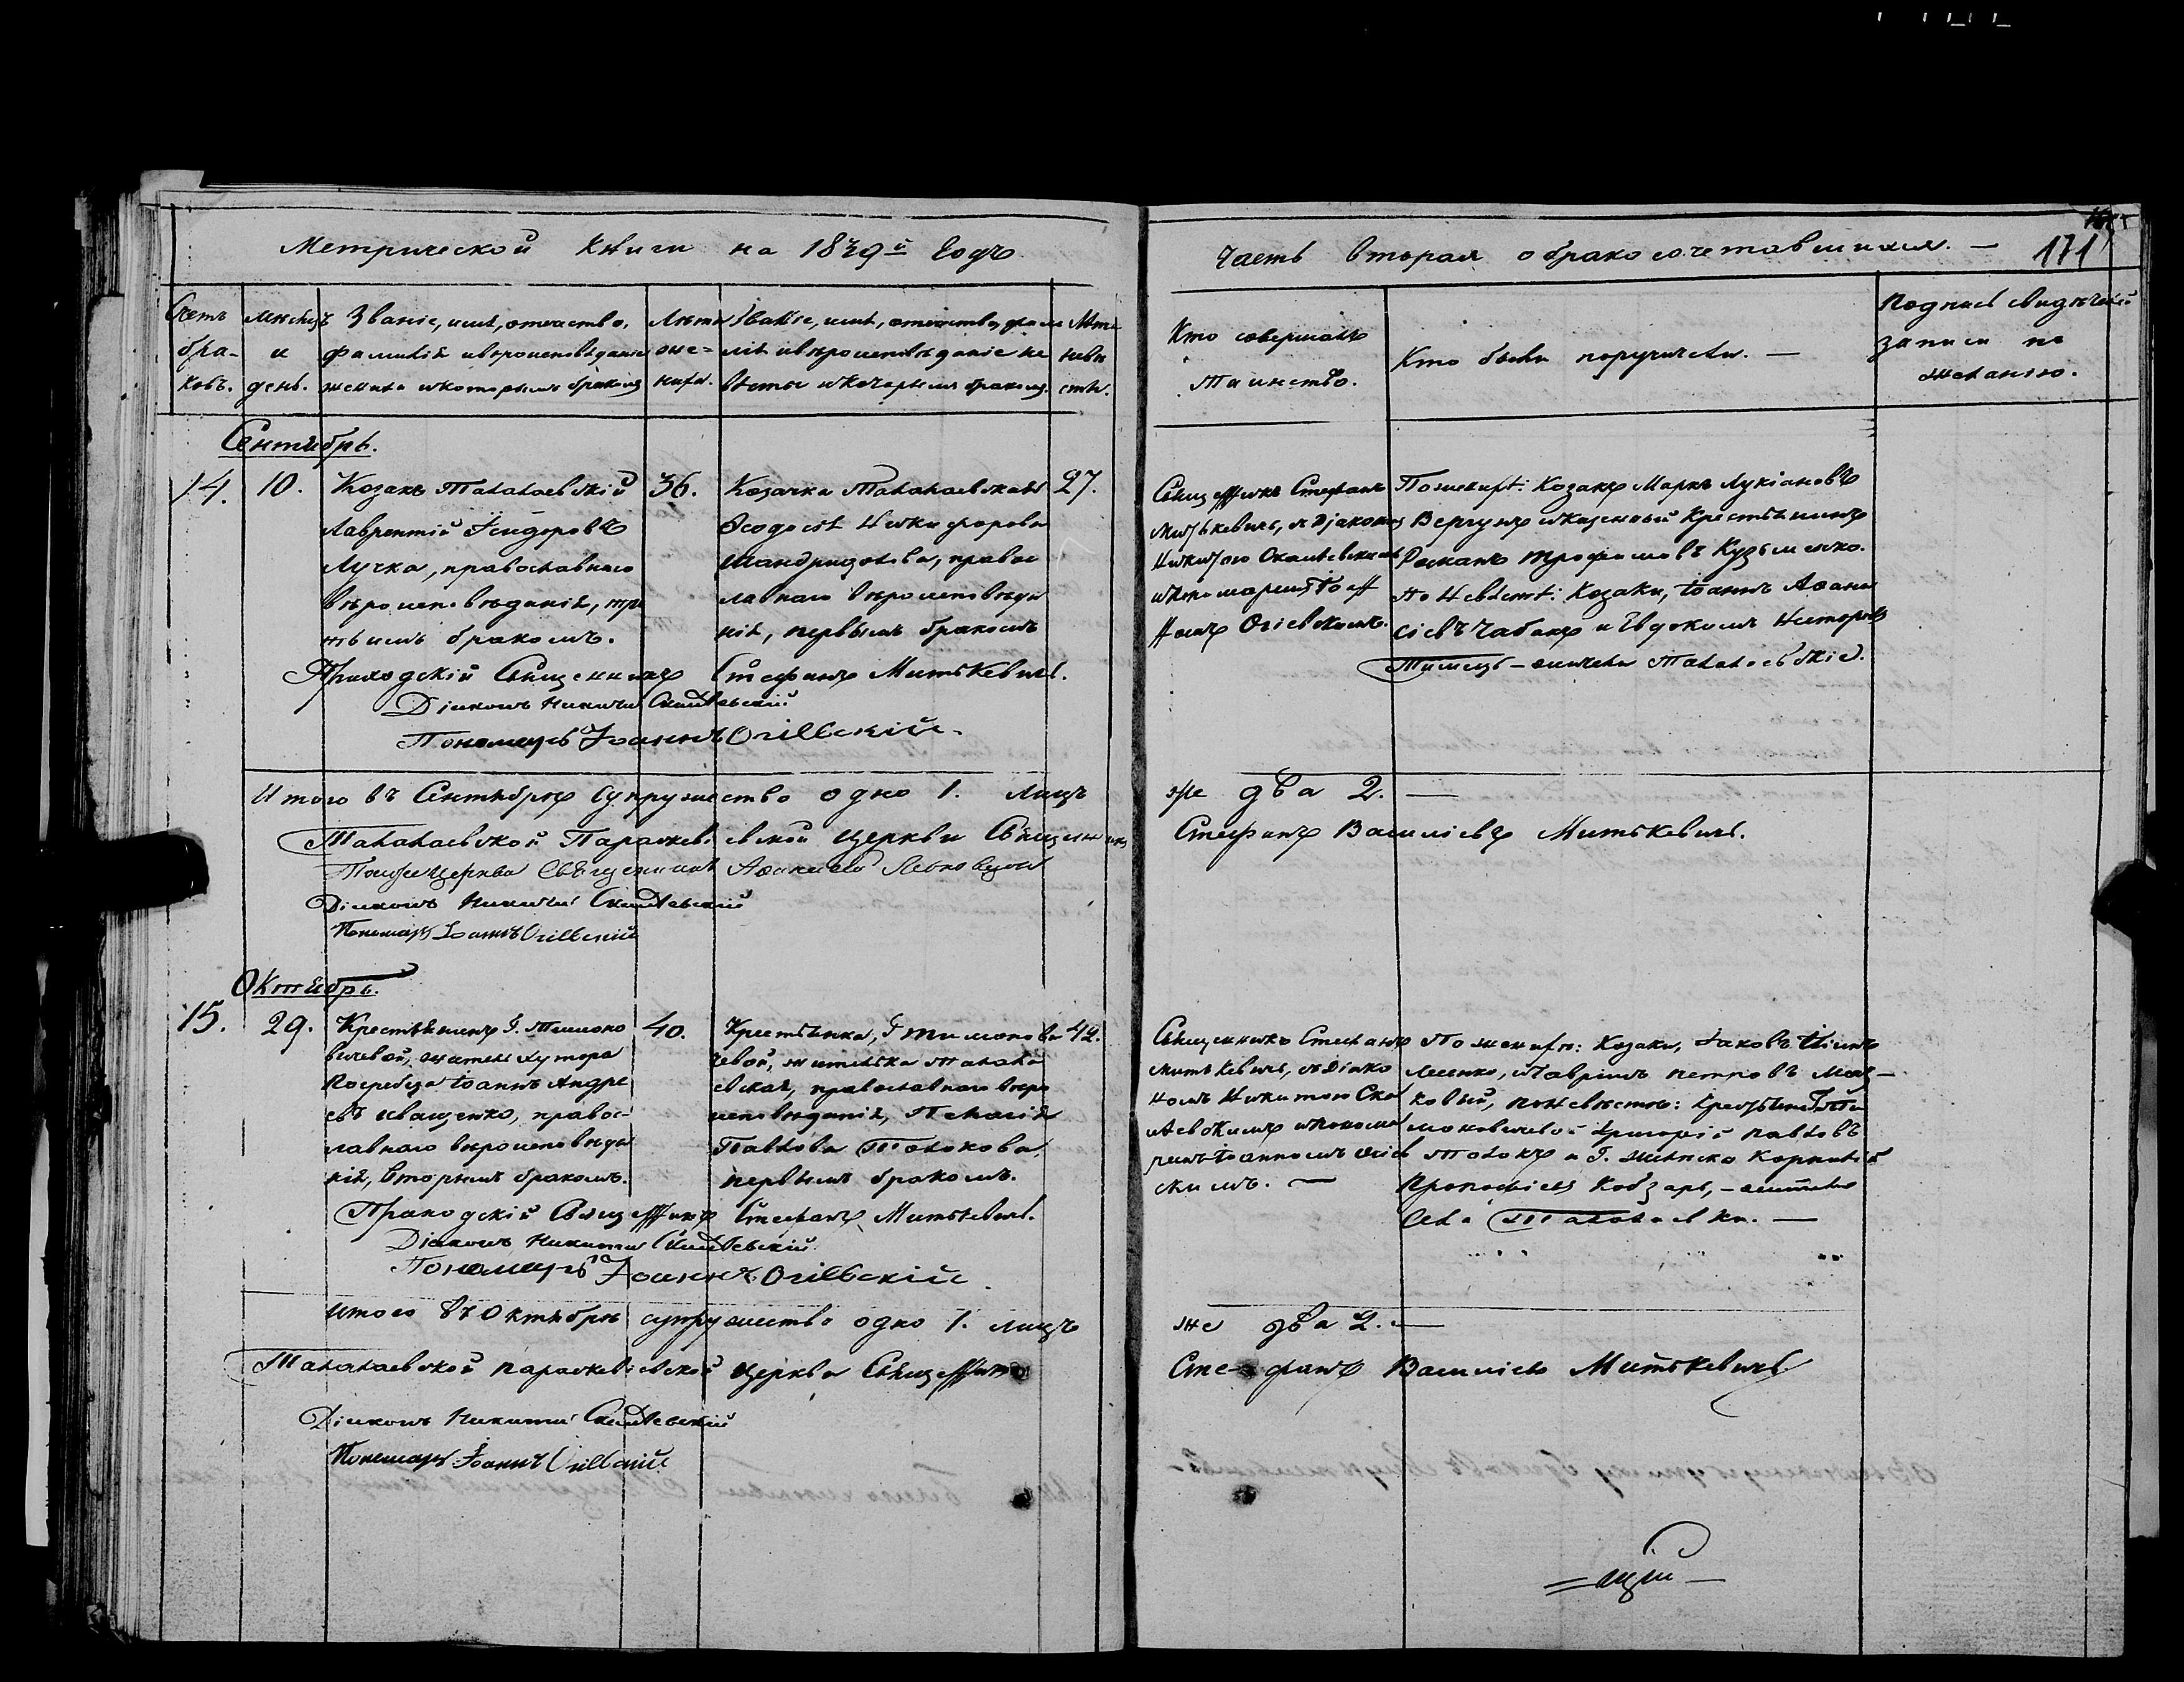 Метрической Книги на 1849й Годъ
Часть вторая о бракосочетавшихся. —
171
Счетъ бра-ковъ.
Мѣсяцъ и день.
Званіе, имя, отчество,
фамилія и вѣроисповѣданіе
жениха и которымъ бракомъ
Лѣта же=ниха.
Званіе, имя, отчество, фами
лія и вѣроисповѣданіе не
вѣсты и которымъ бракомъ.
Лѣта невѣ сты.
Кто совершалъ
Таинство.
Кто были поручители. —
Подписъ свидѣтелей
записи по
желанію.
Сентябрь.
14.
10.
Козакъ Талалаевскій
Лаврентій Исидоровъ
Лучка, православнаго
вѣроисповѣданія, тре
тьимъ бракомъ.
36.
Козачка Талалаевская
Ѳеодосія Никифорова
Мандрицолова, правос
лавнаго вѣроисповѣда
нія, первымъ бракомъ
27.
Священникъ Стефанъ
Митькевичъ, съ Діакономъ
Никитою
и пономаремъ Іоан
номъ Огіевскимъ.
По женихѣ: Козакъ Маркъ Лукіановъ
Вергунъ и казенный Крестьянинъ
Романъ Трофимовъ Кузьменко.
по Невѣстѣ: Козаки, Іоаннъ Аѳана
сіевъ Чабанъ и Евдокимъ Несторовъ
Тимецъ — жители Талалаевскіе.
Приходскій Священникъ Стефанъ Митькевичъ.
Діаконъ Никита
Пономарь Іоаннъ Огіевскій.
Итого въ Сентябрѣ супружество одно 1. лицъ
же два 2. —
Талалаевской Параскевіевской церкви Священникъ
Стефанъ Василіевъ Митькевичъ.
Тойже церкви Священникъ Аѳанасій
Діаконъ Никита
Пономарь Іоаннъ Огіевскій
Октябрь.
15.
29.
Крестьянинъ Г. Тимоно
вичевой, житель хутора
Погребца Іоаннъ Андре
евъ Иващенко, правос-
лавнаго вѣроисповѣда
нія, вторымъ бракомъ.
40.
Крестьянка, Г. Тимонови
чевой, жителька Талала
евская, православнаго вѣро
исповѣданія, Пелагія
Павлова Толокова,
первымъ бракомъ.
42.
Священникъ Стефанъ
Митькевичъ, съ Діако
номъ Никитою
и понома
ремъ Іоанномъ Огіев
скимъ. —
По женихѣ: Козаки, Іаковъ
и Гавріилъ Петровъ
по Невѣстѣ: Крестьяне Г. Ти
моновичевой Григорій Павловъ
Толокъ и Г. Корнилій
Прокофіевъ Кобзарь, — жители
села Талалаевки. —
Приходскій Священникъ Стефанъ Митькевичъ.
Діаконъ Никита
Пономарь Іоаннъ Огіевскій
Итого въ Октябрѣ супружество одно 1. лицъ
же два 2. —
Талалаевской Параскевіевской церкви Священникъ
Стефанъ Василіевъ Митькевичъ
Діаконъ Никита
Пономарь Іоаннъ Огіевскій